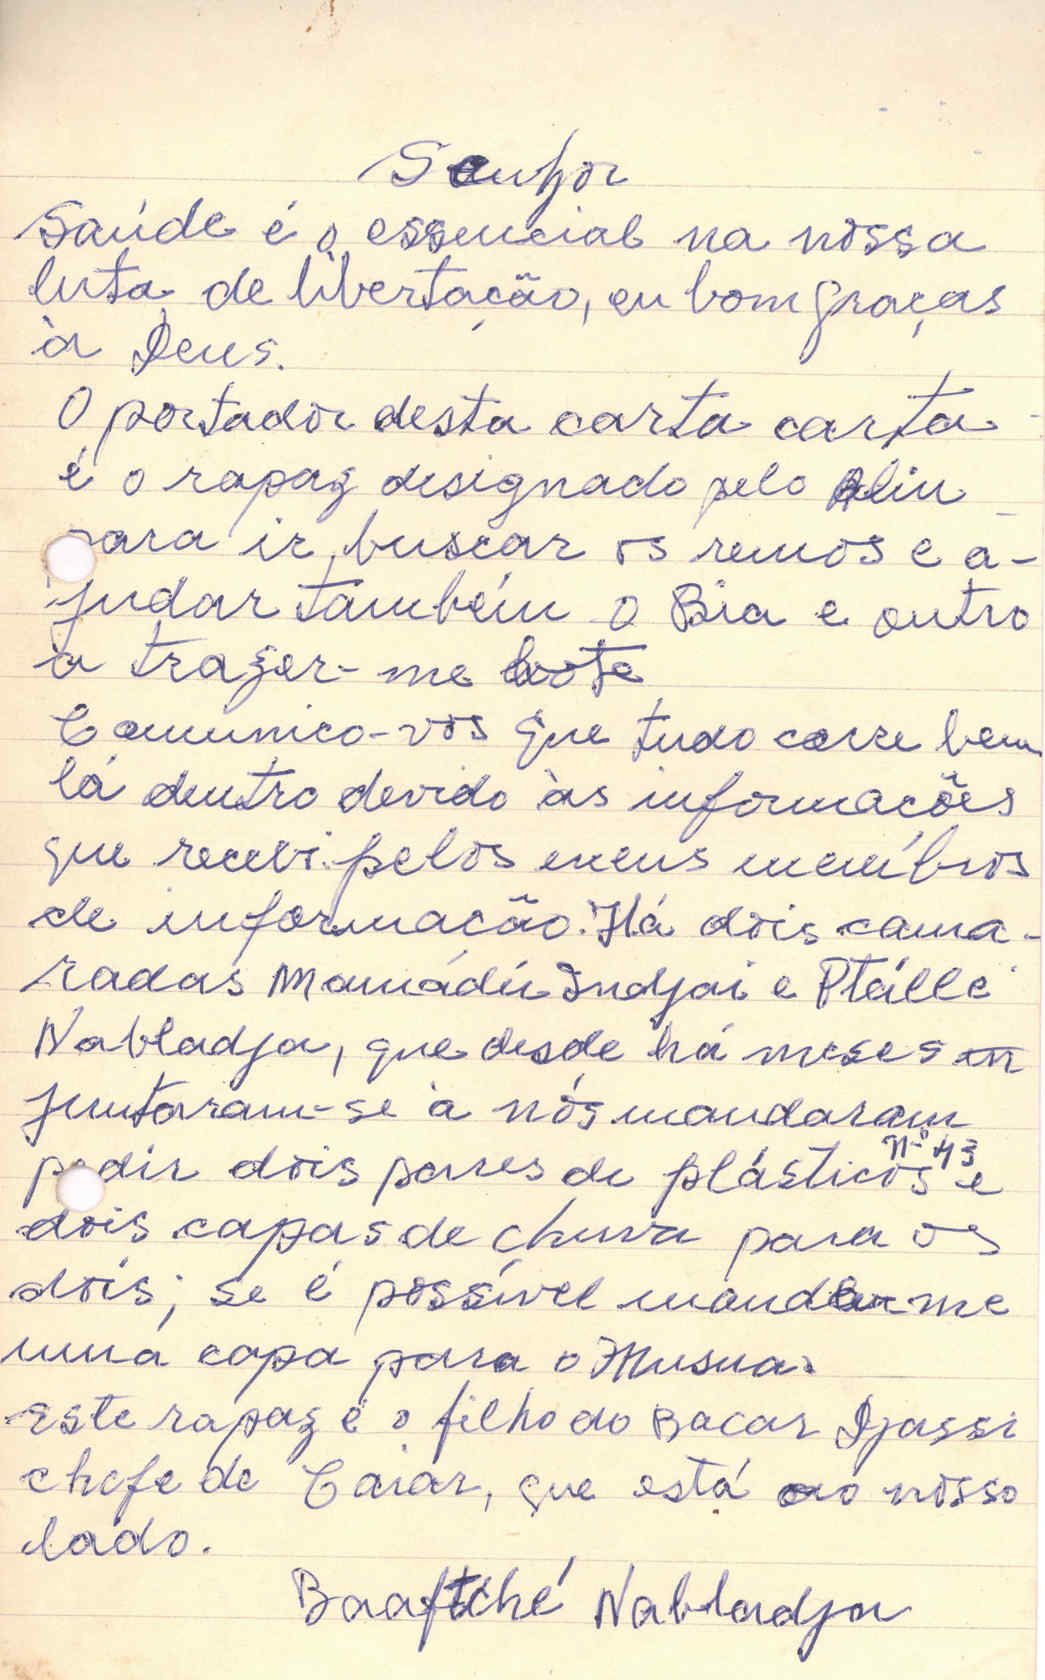 Senhor
Saúde é o essencial na nossa
luta de libertação, eu bom graças
à Deus.
O portador desta carta carta
é o rapaz designado pelo Aliu
para ir buscar os remos e a-
judar também o Bia e outro
a trazer-me bote
Comunico-vos que tudo corre bem
lá dentro devido às informações
que recebi pelos meus membros
de informação. Há dois cama-
radas Mamádú Indjai e
Nabladja, que desde há meses
juntaram-se à nós mandaram
pedir dois pares de plásticos nº 43 e
dois capas de chuva para os
dois; se é possível mandar-me
uma capa para o Musua.
Este rapaz é o filho do Bacar Djassi
chefe de Caiar, que está ao nosso
lado.
Nabladja